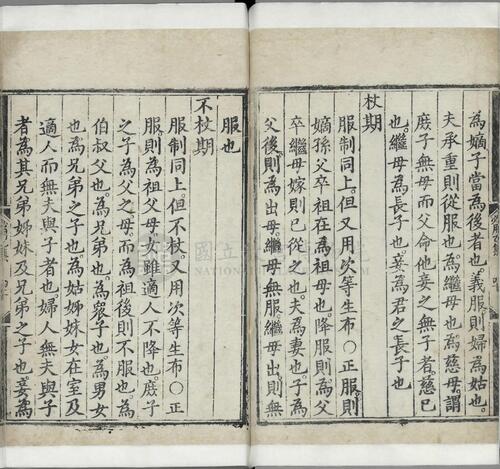 為嫡子當為後者也。義服則婦為姑也。
夫承重則從服也。為繼母也為慈母。謂
庶子無母而父命他妾之無子者慈已
也。繼母為長子也。妾為君之長子也
杖期
服制同上。但又用次等生布○正服。則
嫡孫父卒祖在為祖母也。降服則為父
卒繼母嫁則已從之也。夫為妻也。子為
父後。則為出母。繼母無服繼母出則無
服也
不杖期
服制同上。但不杖。又用次等生布○正
服則為祖父母。女雖適人不降也。庶子
之子為父之母。而為祖後則不服也。為
伯叔父也。為兄弟也。為衆子也。為男女
也。為兄弟之子也。為姑姊妹女在室及
適人而無夫與子者也。婦人無夫與子
者為其兄弟姊妹及兄弟之子也。妾為